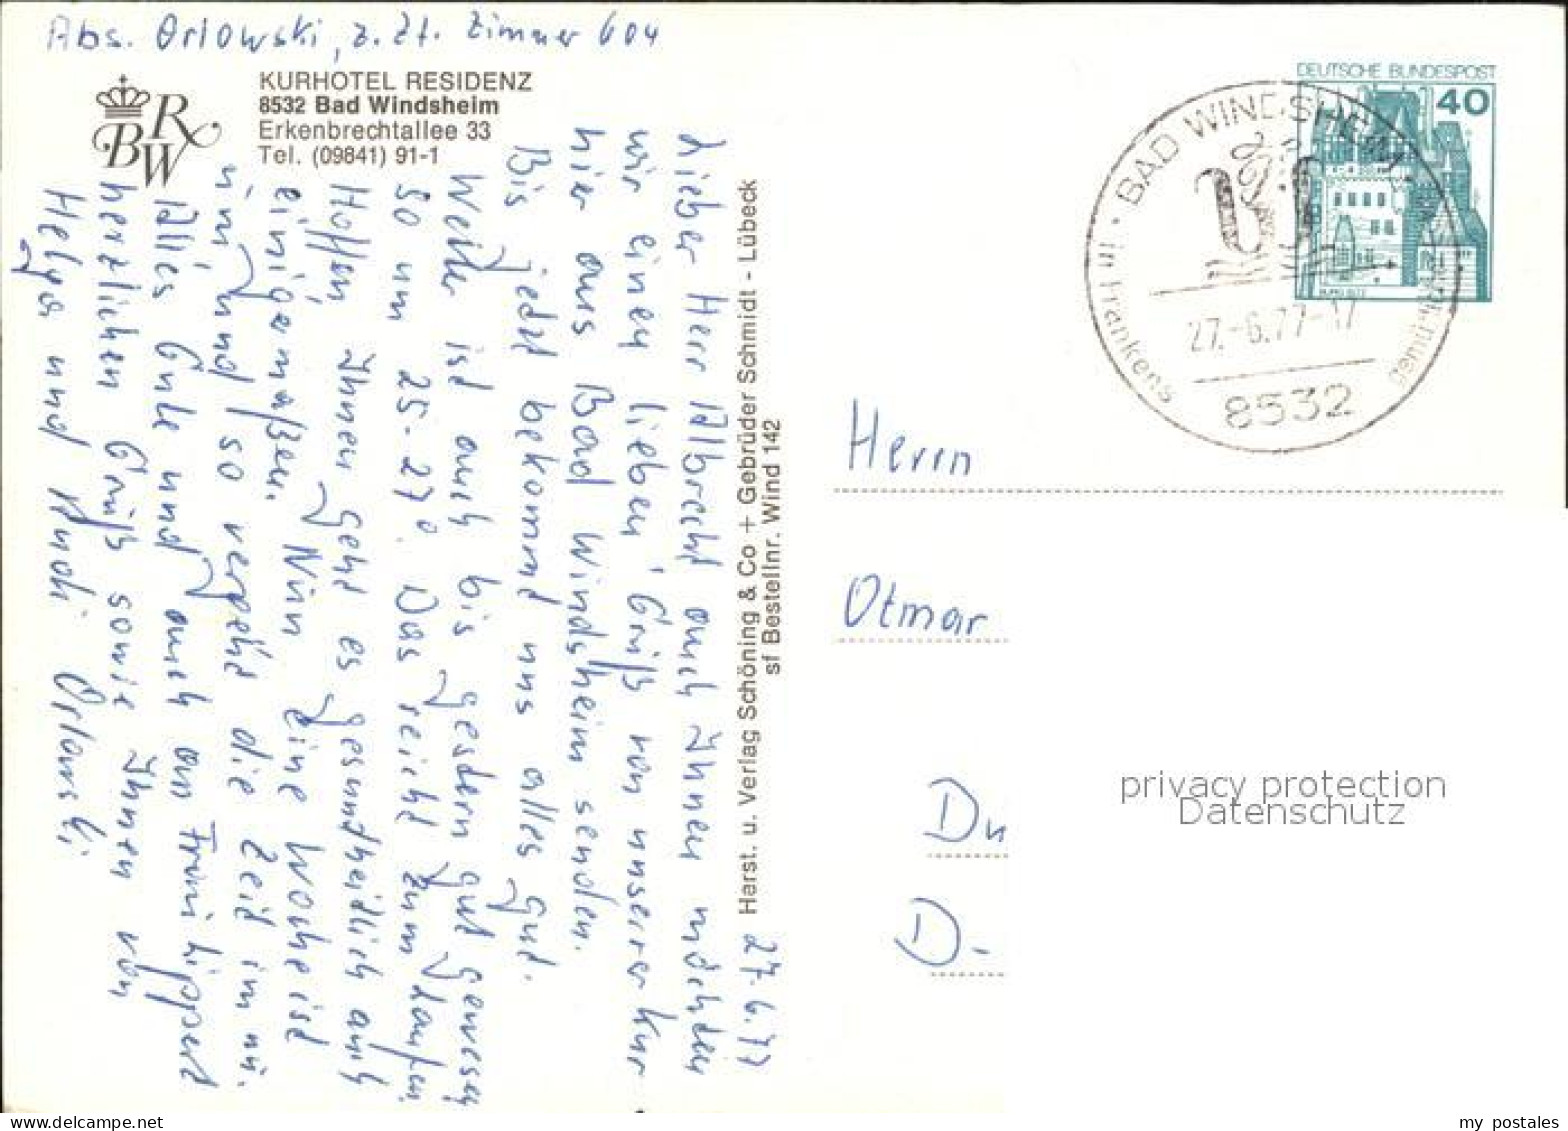 Abs. Orlowski, z. Zt. Zimmer 604
KURHOTEL RESIDENZ
8532 Bad Windsheim
Erkenbrechtallee 33
Tel. (09841) 91-1
RBW
27.6.77
Lieber Herr Albrecht auch Ihnen möchten
wir einen lieben Gruß von unserer Kur
hier aus Bad Windsheim senden.
Bis jetzt bekommt uns alles gut.
Wetter ist auch bis gestern gut gewesen
so um 25-27°. Das reicht zum laufen.
Hoffen, Ihnen geht es gesundheitlich auch
einigermaßen. Nun eine Woche ist
um und so vergeht die Zeit im nu.
Alles Gute und auch an Frau Lippert
herzlichen Gruß sowie Ihnen von
Helga und Rudi Orlowski
Herst. u. Verlag Schöning & Co + Gebrüder Schmidt - Lübeck
sf Bestellnr. Wind 142
DEUTSCHE BUNDESPOST
40
BURG ELTZ
· BAD WINDSHEIM ·
in Frankens
27.-6.77-17
8532
Herrn
Otmar
Du
D.
privacy protection
Datenschutz
my postales